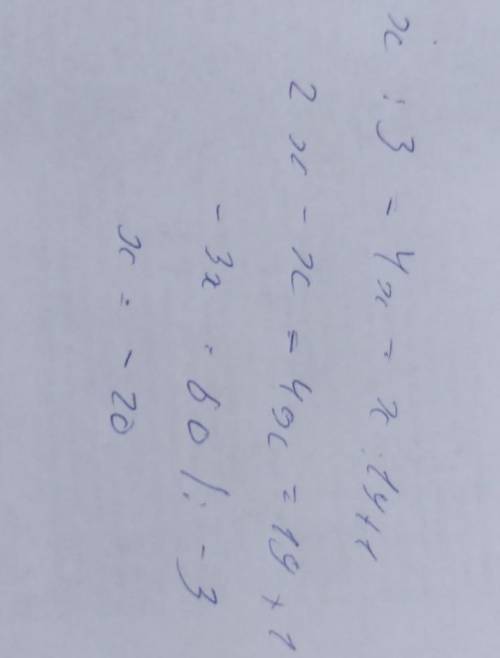 x : 3 = 4x = x : 19 + 1
2x - x = 4x = 19 + 1
- 3x = 60 /: - 3
x = - 20